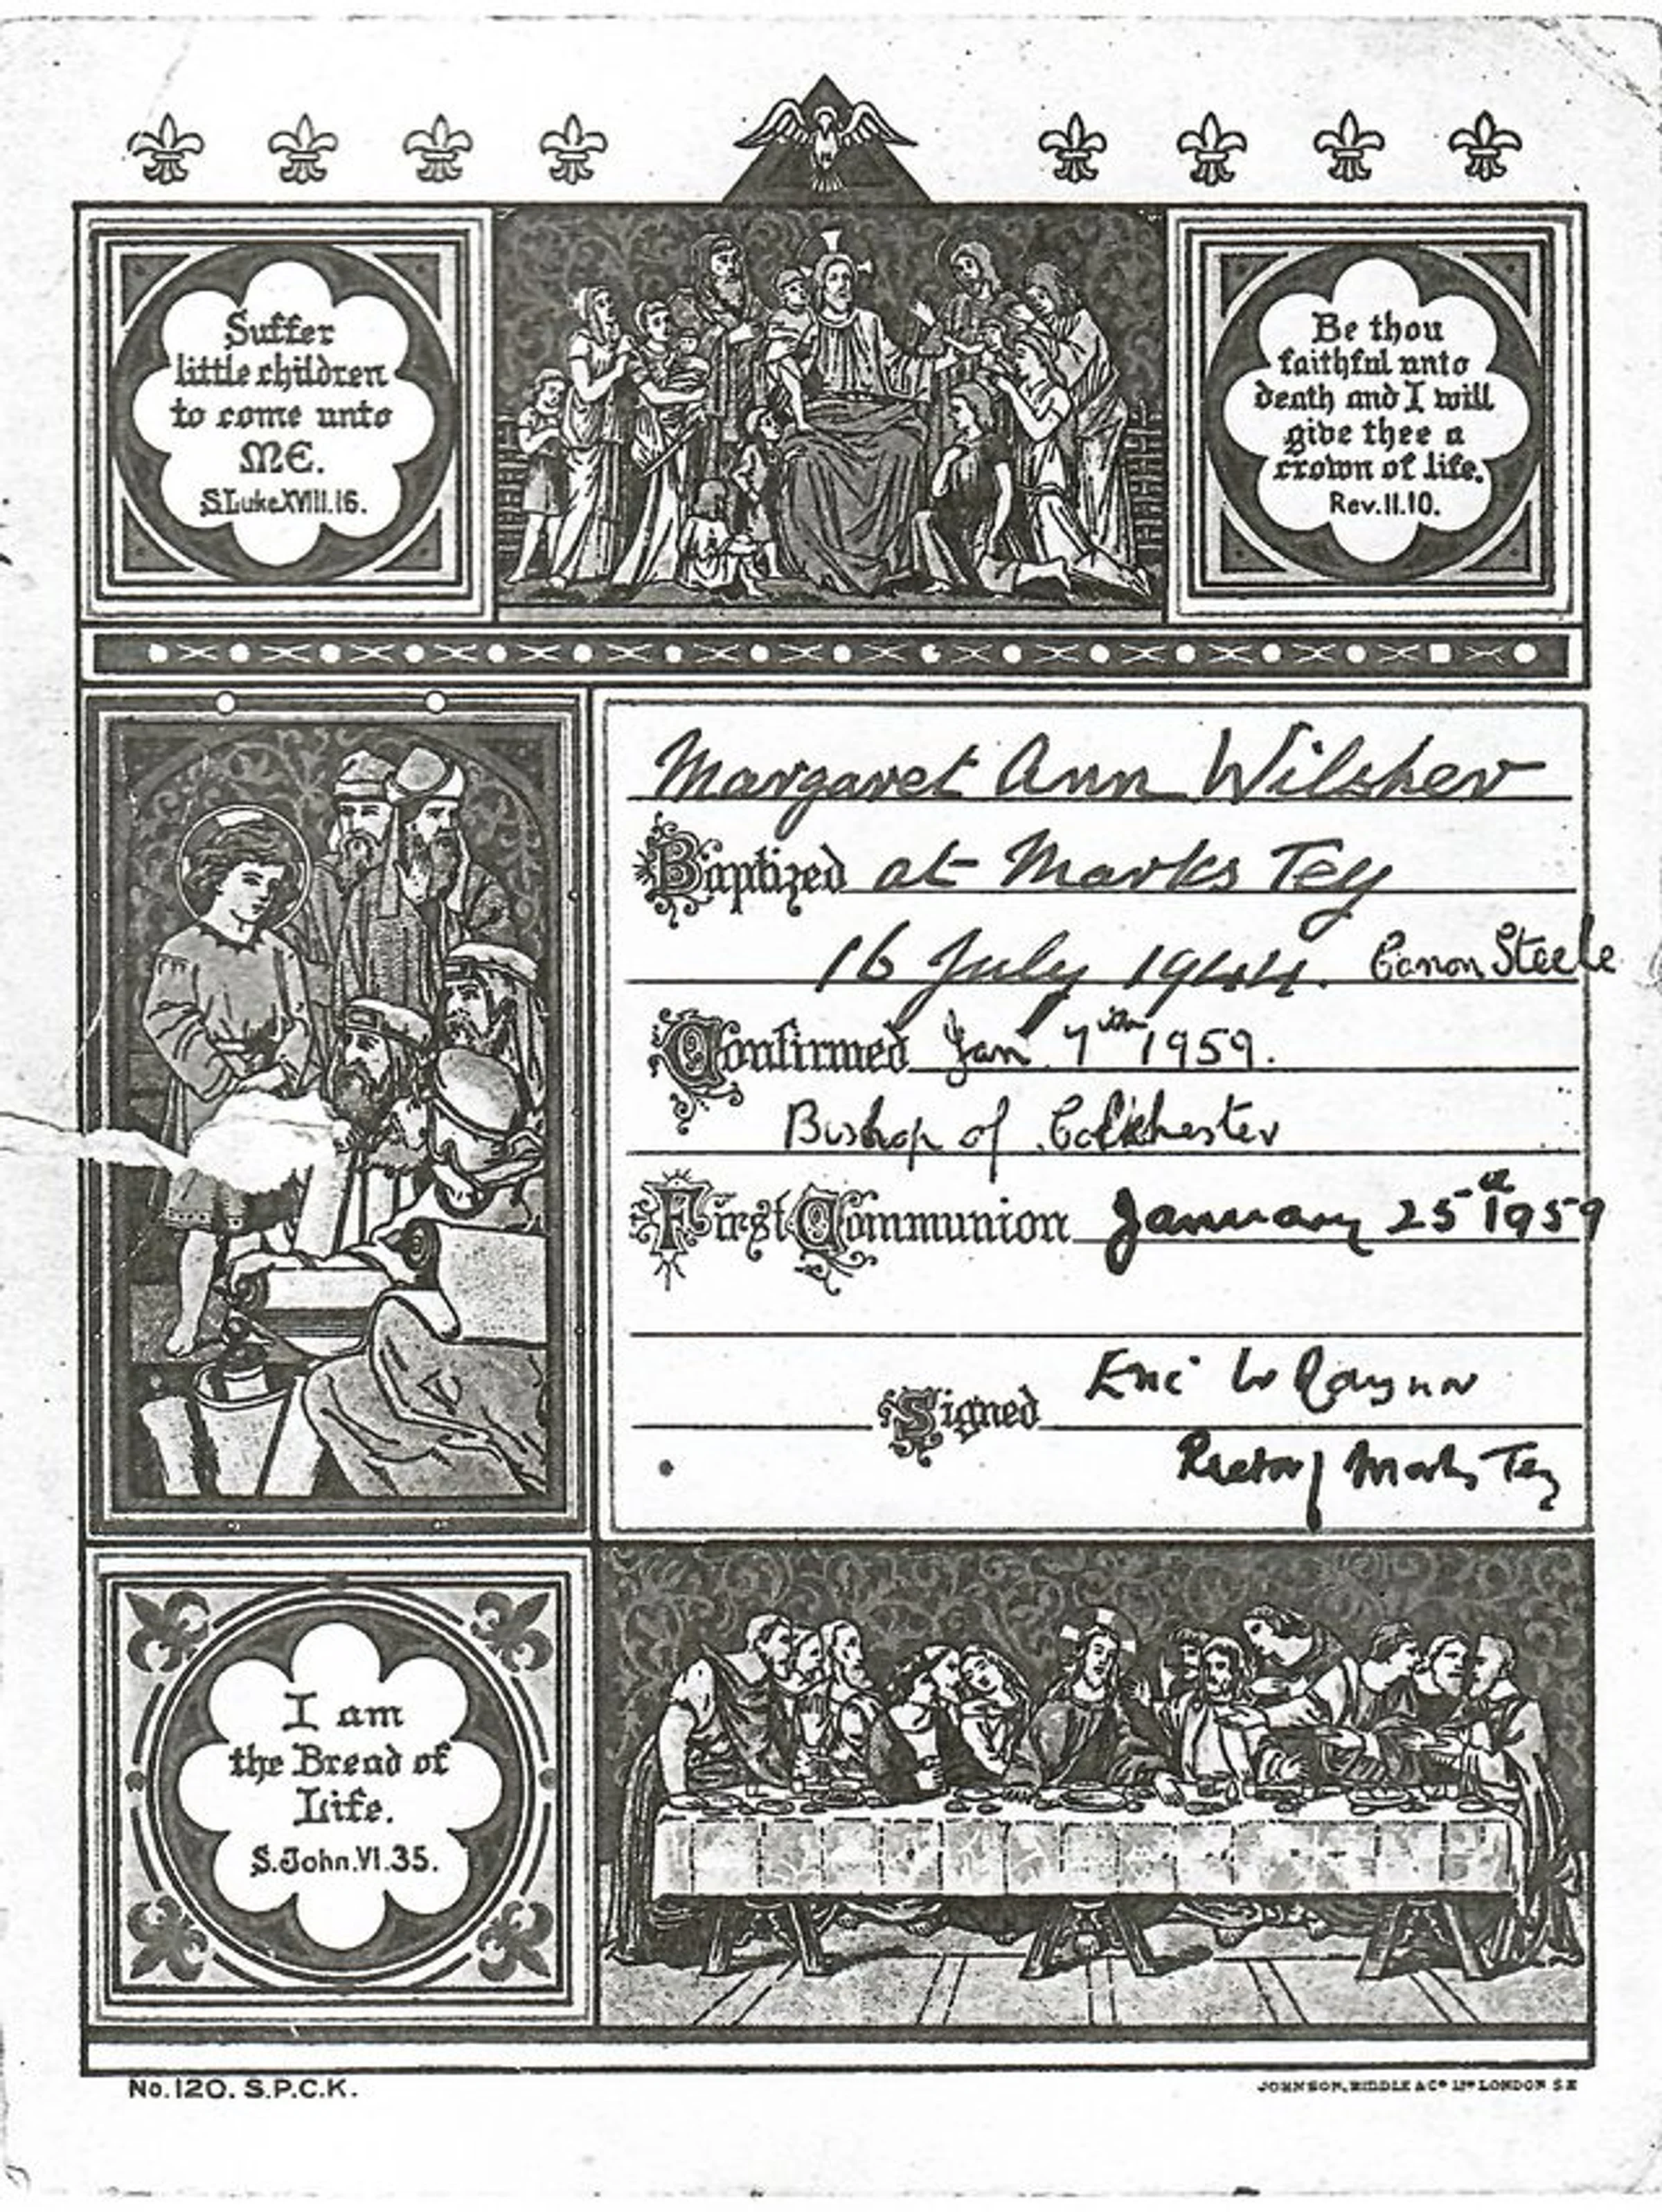 Suffer
little children
to come unto
ME.
S. Luke XVIII.16.
Be thou
faithful unto
death and I will
give thee a
crown of life.
Rev. II. 10.
Margaret Ann Wilsher
Baptized at Marks Tey
16 July 1944. Canon Steele
Confirmed Jan 7th 1959.
Bishop of Colchester
First Communion January 25th 1959
Signed Eric W Raynor
Rector of Marks Tey
I am
the Bread of
Life.
S. John. VI. 35.
No. 120. S.P.C.K.
JOHNSON, RIDDLE & Co LTD LONDON S.E